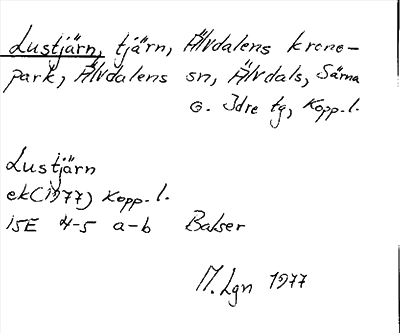 Lustjärn, tjärn, Älvdalens krono-
park, Älvdalens sn, Älvdals, Särna
o. Idre tg, Kopp.l.
Lustjärn
ek(1977) Kopp.l.
15E 4-5 a-b Balser
M. Lgn 1977